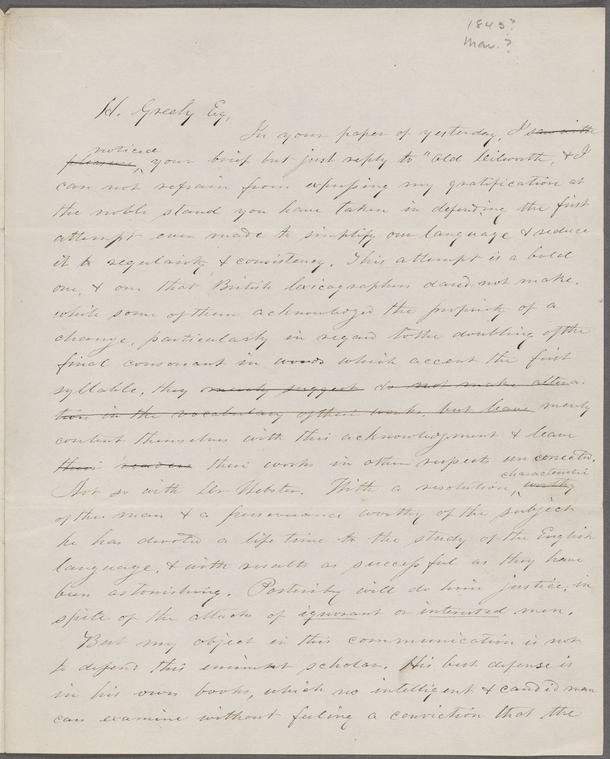 1843?
Mar. ?
H. Greely Esq,
In your paper of yesterday, I saw in the
noticed
pleasure, your brief but just reply to "Old Dilworth, & I
can not refrain from expressing my gratification at
the noble stand you have taken in defending the first
attempt ever made to simplify our language & reduce
it to regularity & consistency. This attempt is a bold
one, & one that British lexicographers dared not make.
while some of them acknowledged the propriety of a
change, particularly in regard to the doubling of the
final consonant in words which accent the first
syllable, they merely suggest do not make altera-
tion in the vocabulary of their works, but leave merely
content themselves with this acknowledgment & leave
their readers their works in other respects uncorrected.
characteristic
Not so with Dr Webster. With a resolution, worthy
of the man & a perseverance worthy of the subject
he has devoted a life time to the study of the English
language, & with results as successful as they have
been astonishing. Posterity will do him justice, in
spite of the attacks of ignorant or interested men.
But my object in this communication is not
to defend this eminent scholar. His best defense is
in his own books, which no intelligent & candid man
can examine without feeling a conviction that the